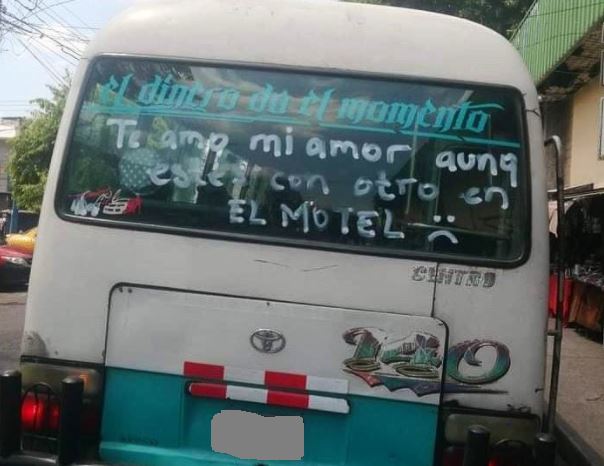 el dinero da el momento
Te amo mi amor aunq
estes con otro en
EL MOTEL :(
CENTRO
140